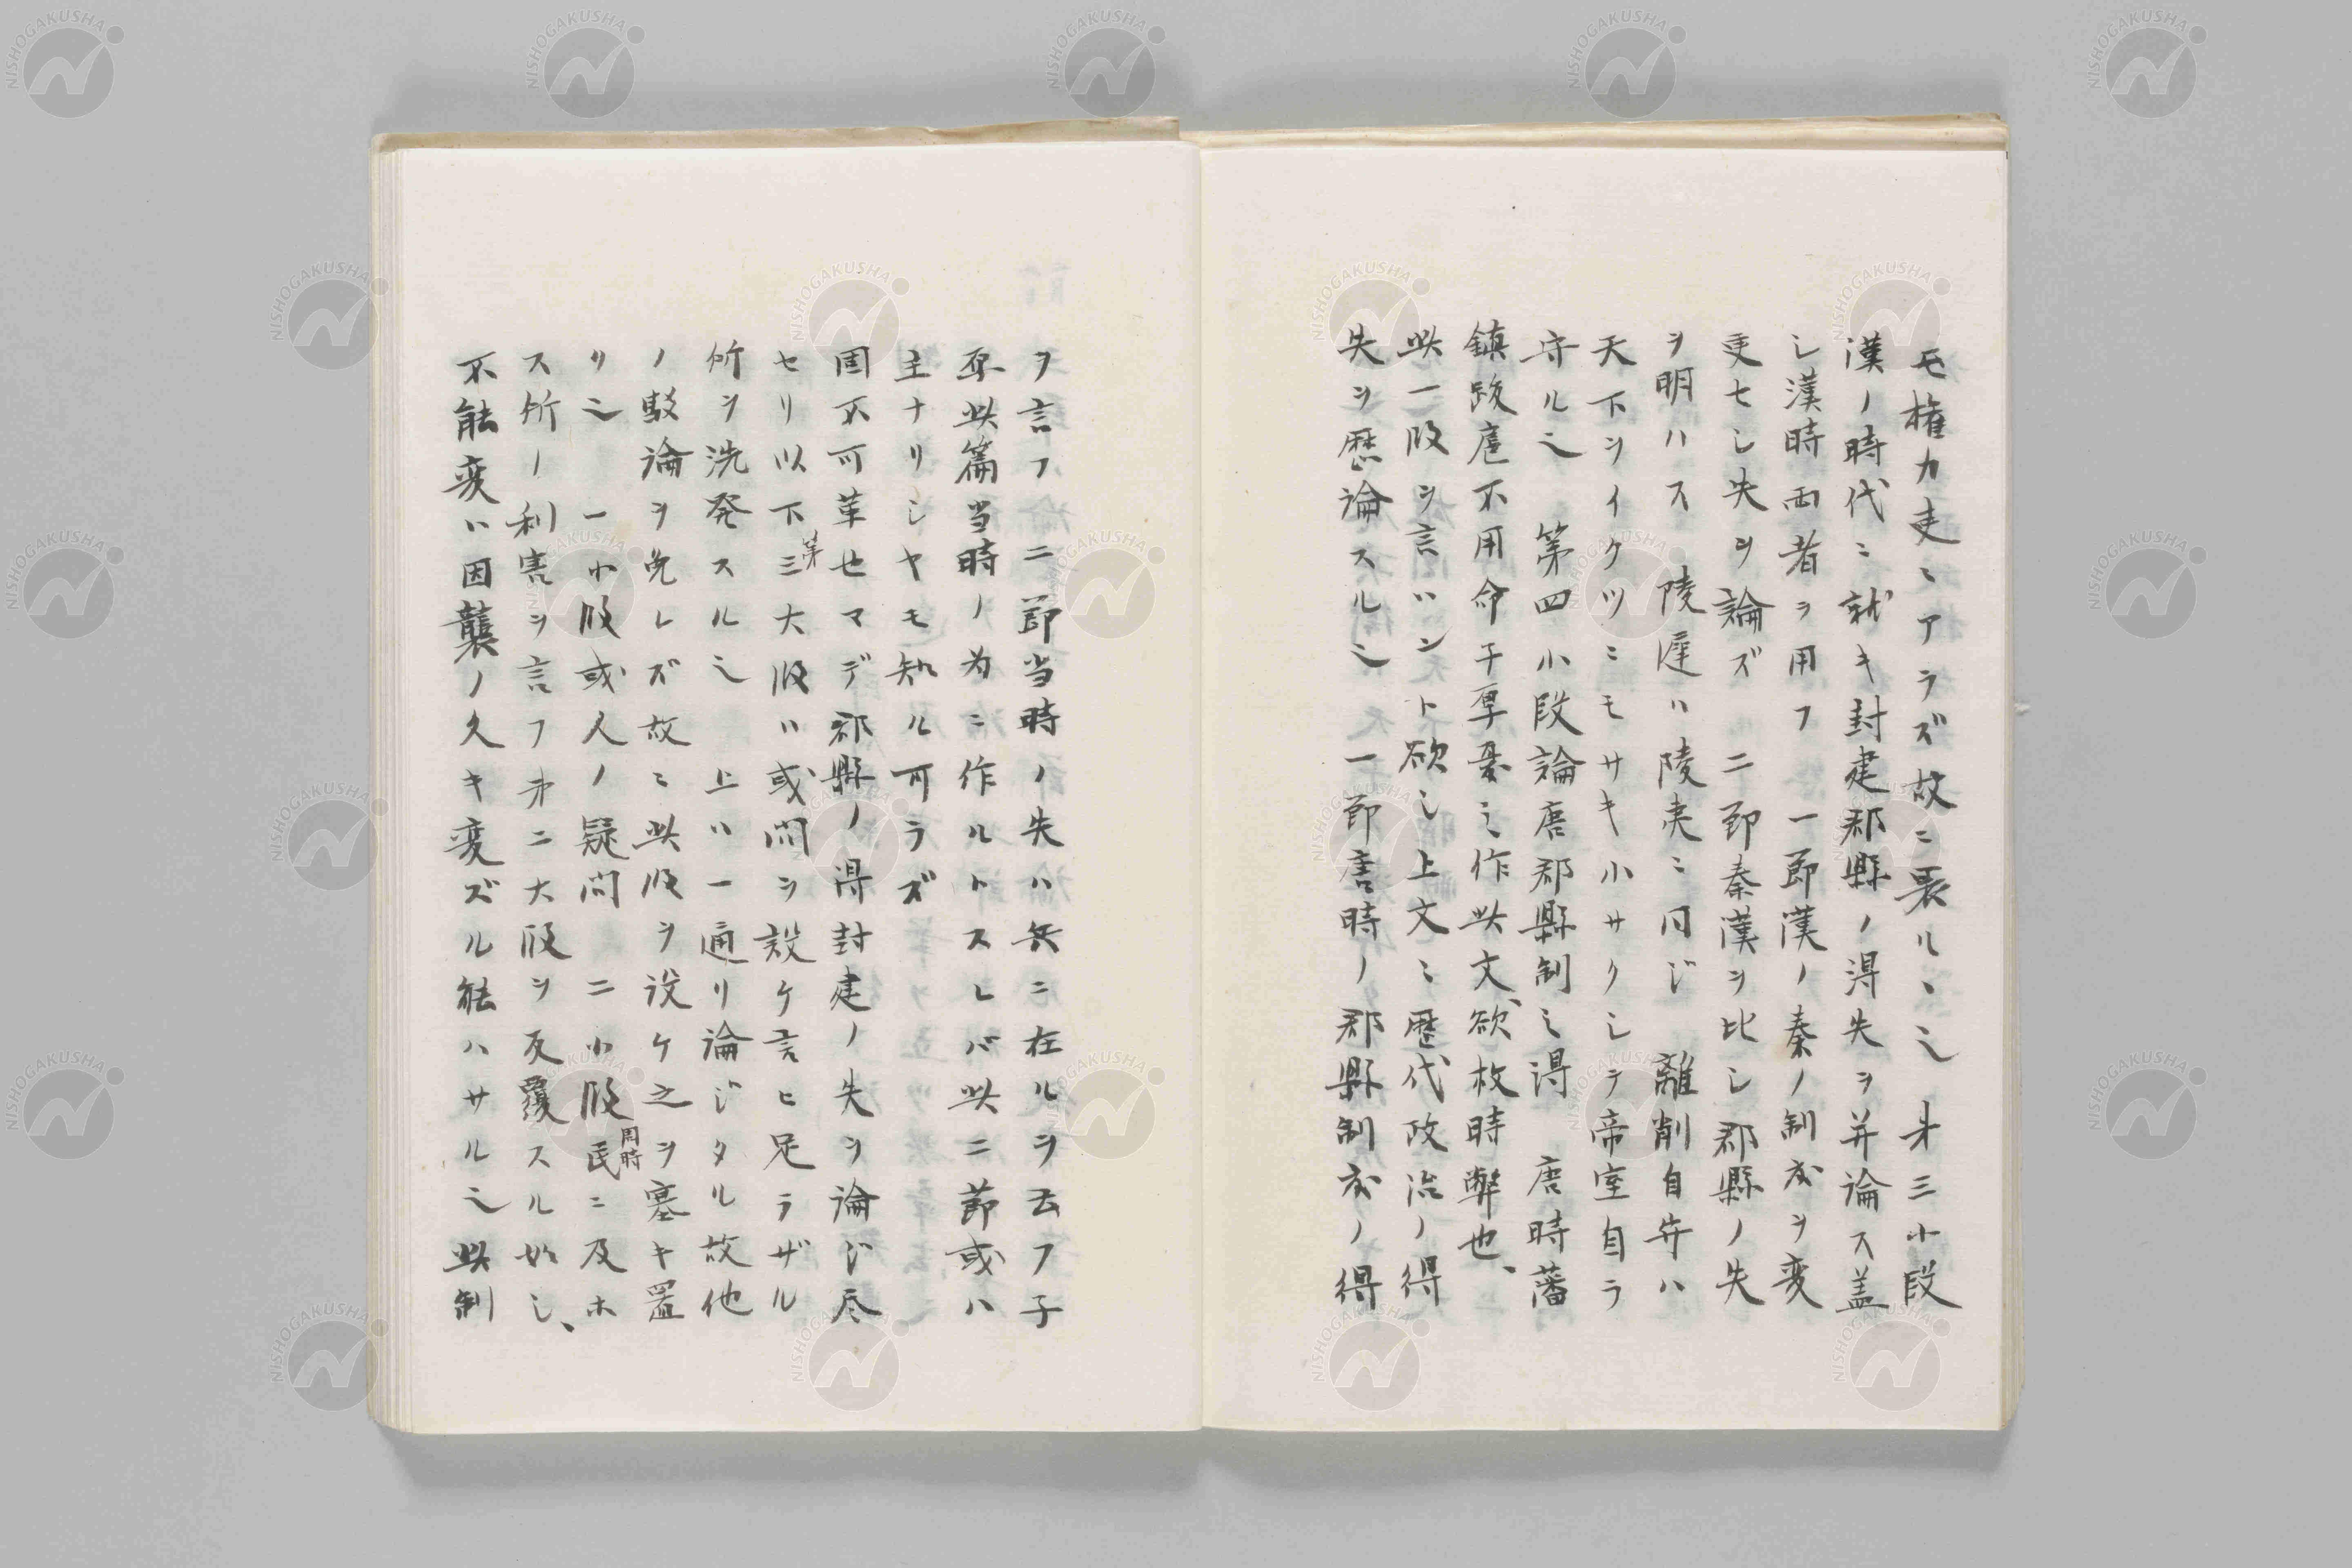 モ権力吏ニアラズ故ニ畏ルヽ也 㐧三小段
漢ノ時代ニ就キ封建郡縣ノ得失ヲ并論ス蓋
シ漢時両者ヲ用フ 一節漢ノ秦ノ制度ヲ変
更セシ失ヲ論ズ 二節秦漢ヲ比シ郡縣ノ失
ヲ明ハス 陵遅ハ陵夷ニ同ジ 離削自弁ハ
天下ヲイクツニモサキ小サクシテ帝室自ラ
守ル也 第四小段論唐郡縣制之得 唐時藩
鎮跋扈不用命子厚憂之作此文欲救時弊也、
此一段ヲ言ハント欲シ上文ニ歴代政治ノ得
失ヲ歴論スル也 一節唐時ノ郡縣制度ノ得
ヲ言フ 二節当時ノ失ハ兵ニ在ルヲ云フ子
厚此篇当時ノ為ニ作ルトスレバ此二節或ハ
主ナリシヤモ知ル可ラズ
固不可革也マデ郡縣ノ得封建ノ失ヲ論ジ尽
セリ以下第三大段ハ或問ヲ設ケ言ヒ足ラザル
所ヲ洗発スル也 上ハ一通リ論ジタル故他
ノ駁論ヲ免レズ故ニ此段ヲ設ケ之ヲ塞キ置
リ也 一小段或人ノ疑問 二小段周時民ニ及ホ
ス所ノ利害ヲ言フ㐧二大段ヲ反覆スル如シ、
不能変ハ因襲ノ久キ変ズル能ハサル也此制